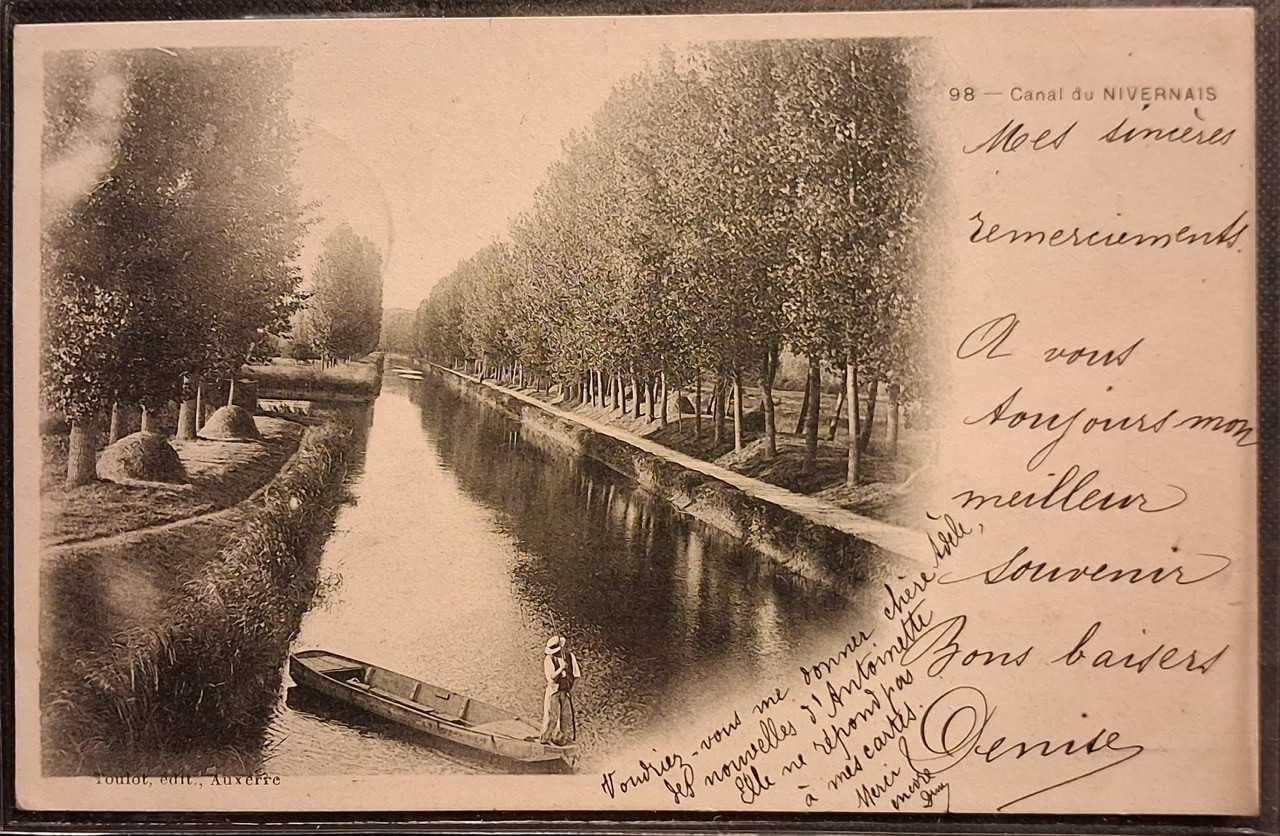 98 — Canal du NIVERNAIS
Mes sincères
remerciements.
A vous
toujours mon
meilleur
souvenir
Bons baisers
Denise
Voudriez-vous me donner chère Adèle,
des nouvelles d'Antoinette
Elle ne répond pas
à mes cartes.
Merci
encore
Toulot, édit., Auxerre